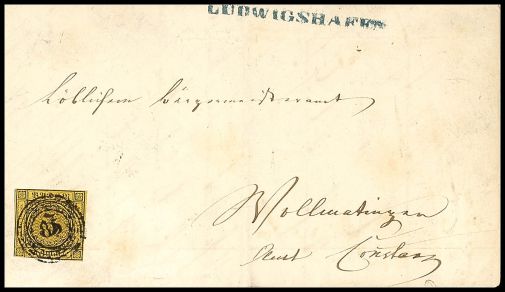 LUDWIGSHAFEN
Löblichem Bürgermeisteramt
BADEN
Wollmatingen
Amt Constanz